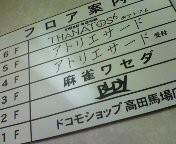 フロア案内
6F THANATOS6
5F アトリエサード 受付
4F アトリエサード
3F 麻雀ワセダ
2F BODY
1F ドコモショップ高田馬場